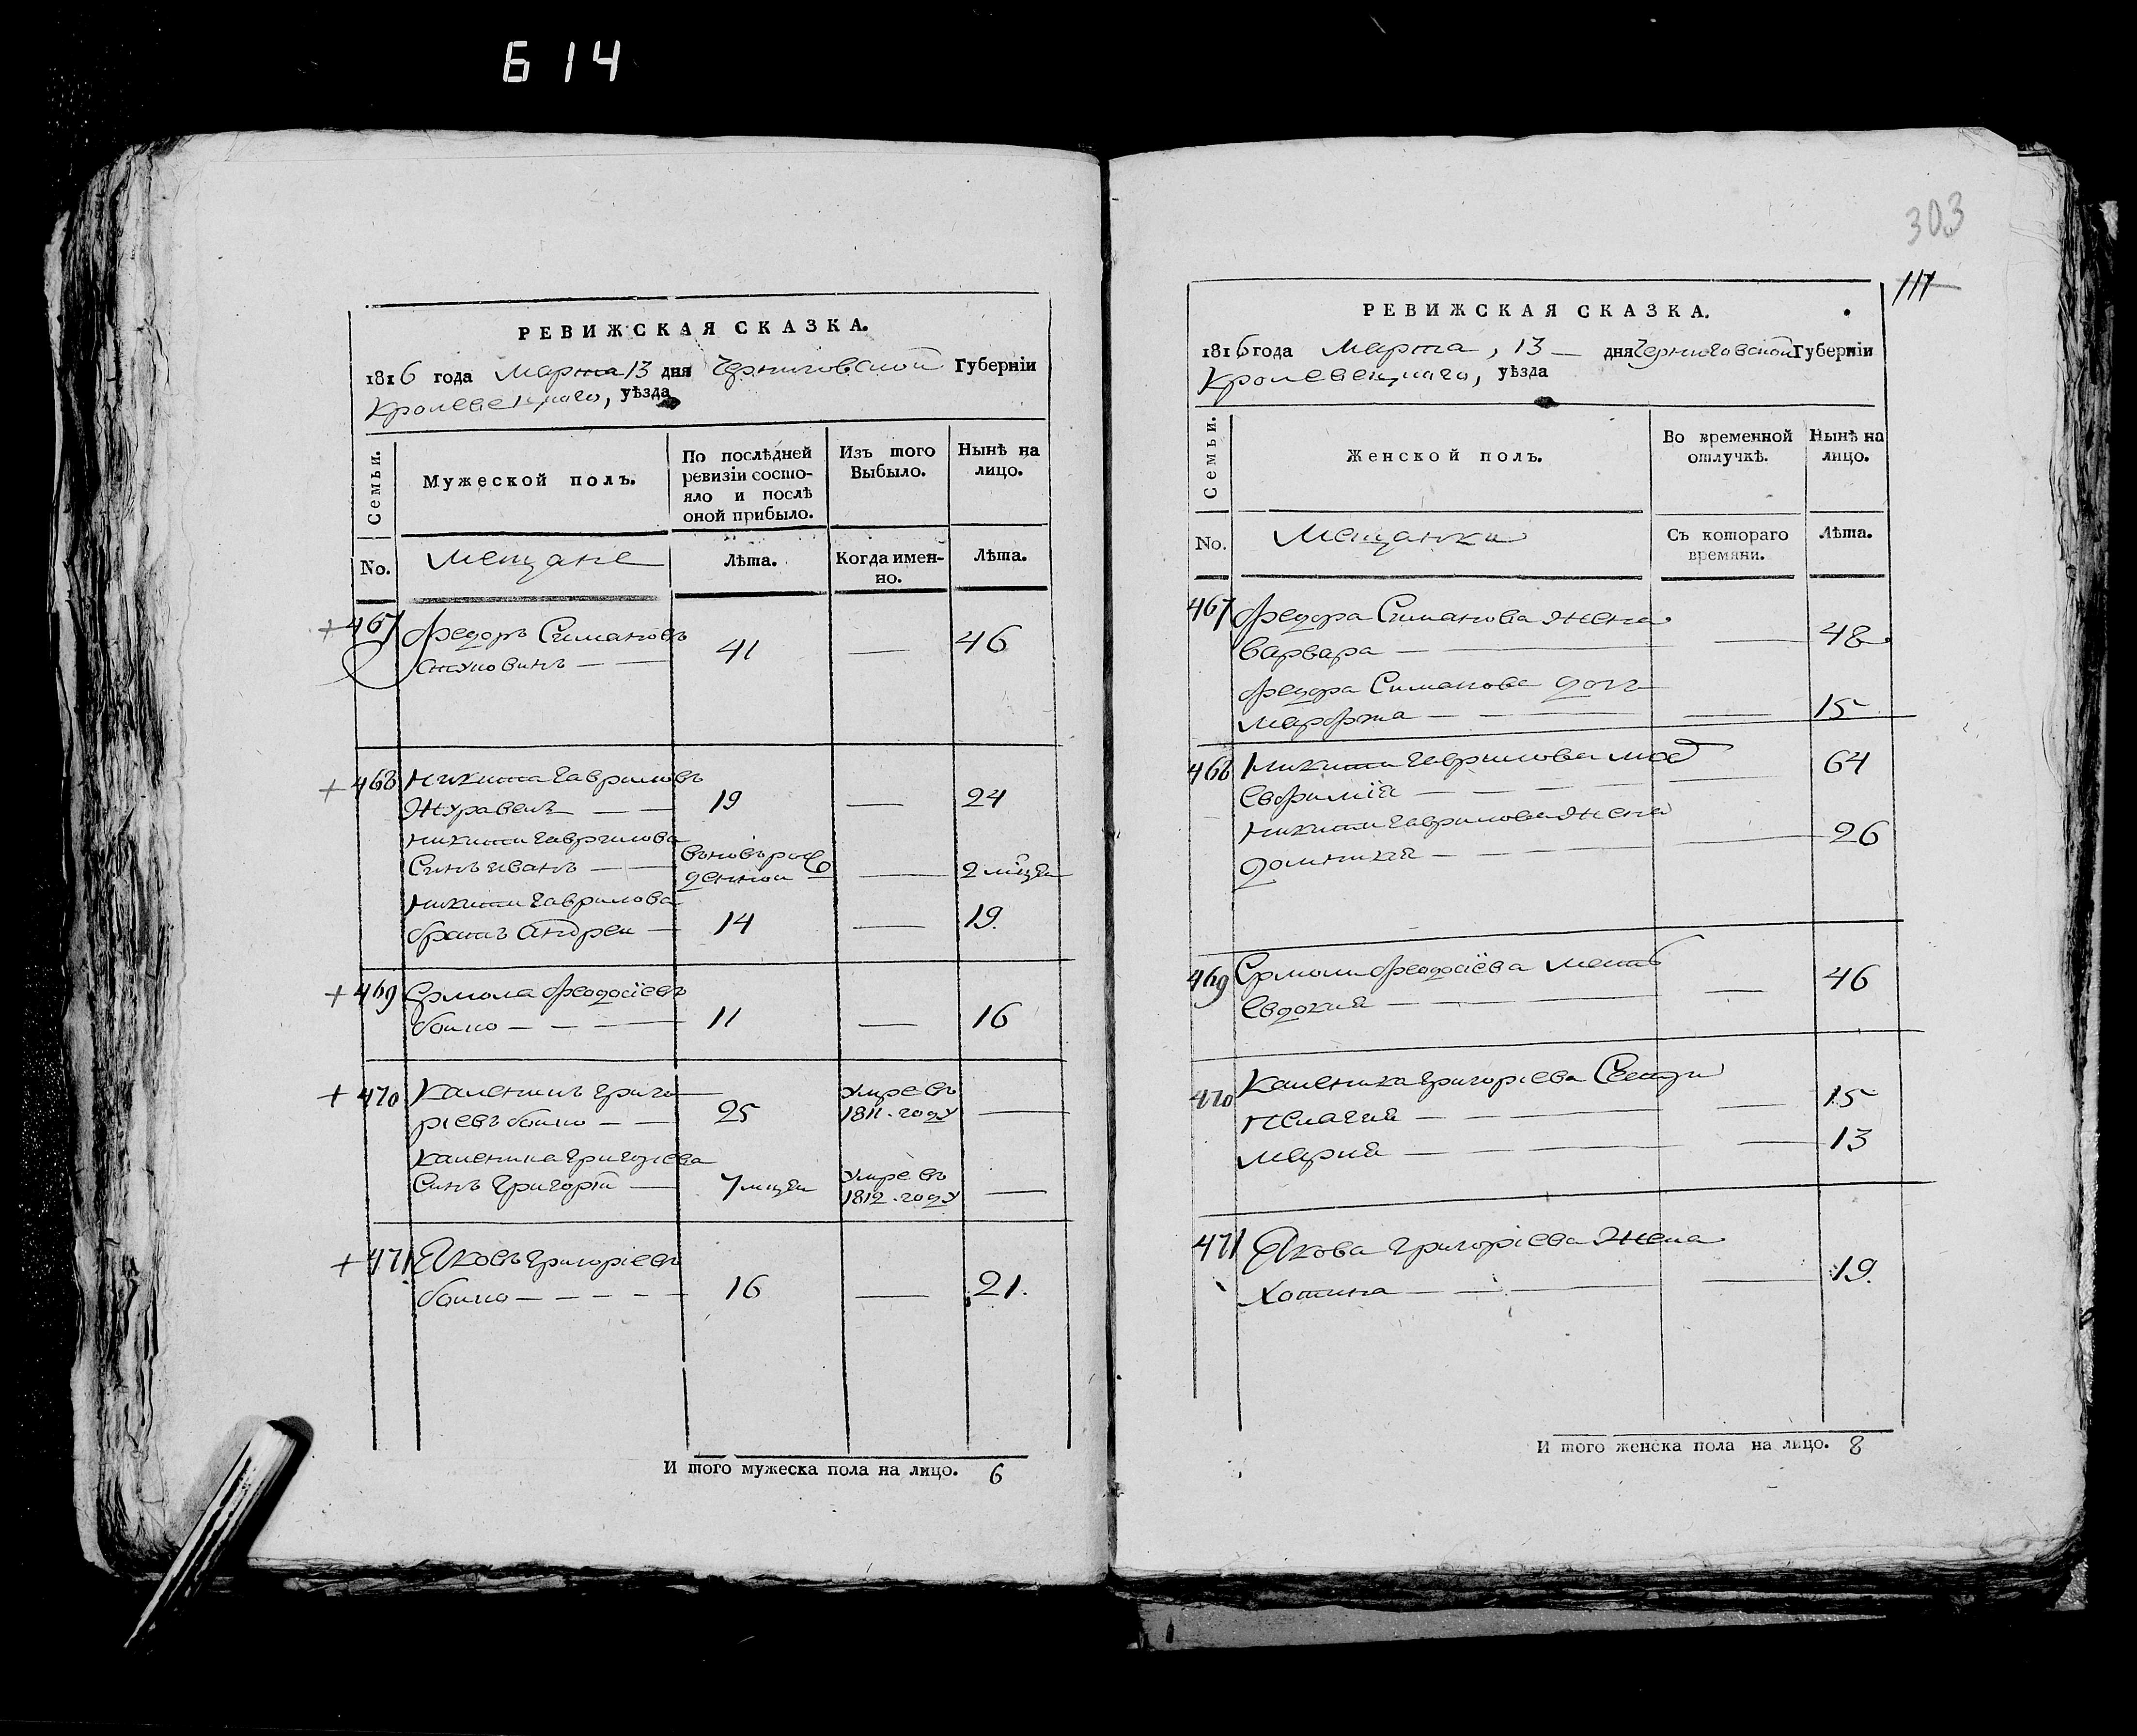 614
РЕВИЖСКАЯ СКАЗКА.
1816 года Марта 13 дня Черниговской Губернїи
Кролевецкаго, уѣзда
Семьи.
Мужеской полъ.
По послѣдней ревизїи состо-
яло и послѣ
оной прибыло.
Изъ того
Выбыло.
Нынѣ на
лицо.
No.
Мещане
Лѣта.
Когда имен-
но.
Лѣта.
467 Федоръ Симановъ
41 — 46
468 Никита Гавриловъ
Журавель — — 19 — 24
Никити Гаврилова
Синъ Иванъ — вновьрож
денной — 2 мцъя
Никити Гаврилова
братъ Андреи — 14 — 19.
469 Ермола Феодосїевъ
боило — — — 11 — 16
470 Каленикъ Григо
рїевъ боило — — 25 умре въ 1811. году —
Каленика Григорїева
Синъ Григорїй — 7 мцъя умре въ 1812. году —
471 Яковъ Григорїевъ
боило — — — — — 16 — 21.
И того мужеска пола на лицо. 6
303
117
РЕВИЖСКАЯ СКАЗКА.
1816 года Марта, 13 — дня Черниговской Губернїи
Кролевецкаго, уѣзда
Семьи.
Женской полъ.
Во временной
отлучкѣ.
Нынѣ на
лицо.
No.
Мещанки
Съ котораго
времяни.
Лѣта.
467 Федора Симанова жена
Варвара — — 48
Федора Симанова доч
Марфта — — — 15
468 Никити Гаврилова мат 64
Евфимїя — — — —
Никити Гаврилова жена
Домникия — — — 26
469 Ермоли Феодосїева мать
Евдокия — — — 46
470 Каленика Григорїева Сестри
Пелагия — — — 15
Мария — — — 13
471 Якова Григорїева Жена
Хотина — — — 19.
И того женска пола на лицо. 8